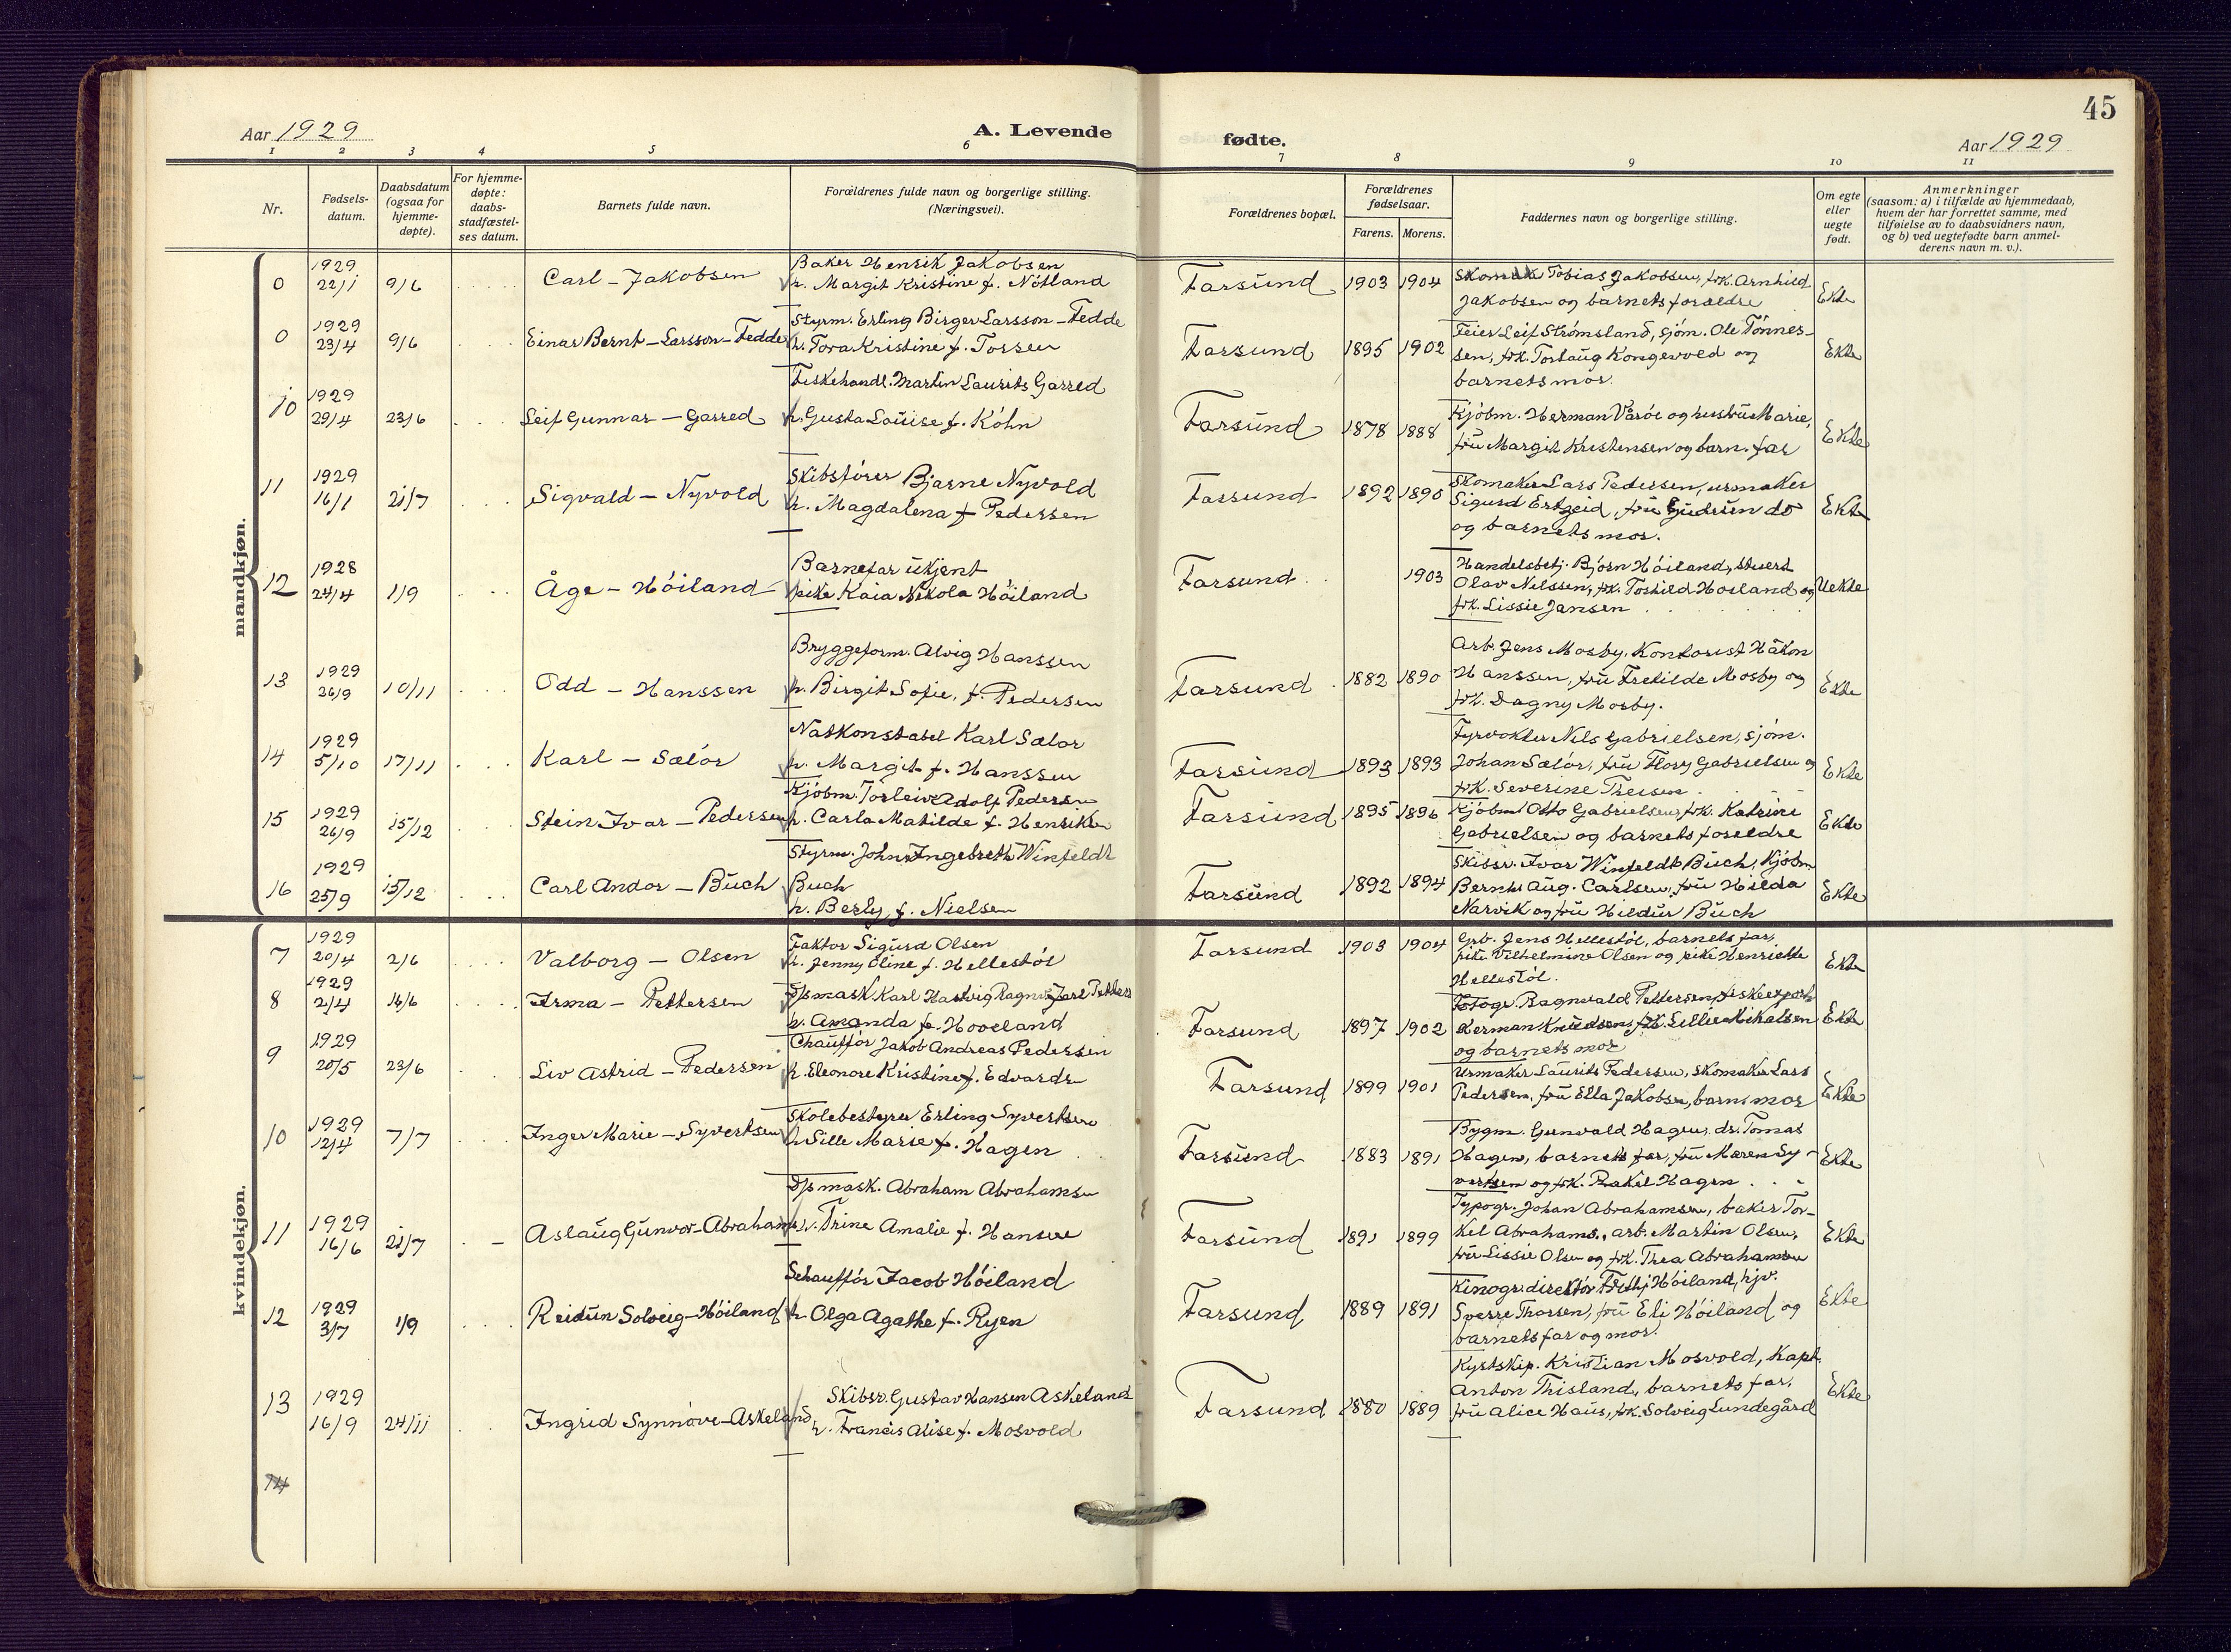 45
Aar 1929
A. Levende
fødte.
Aar 1929
1 2 3 4 5 6 7 8 9 10 11
Nr.
Fødsels-
datum.
Daabsdatum
(ogsaa for
hjemme-
døpte).
For hjemme-
døpte:
daabs-
stadfæstel-
ses datum.
Barnets fulde navn.
Forældrenes fulde navn og borgerlige stilling.
(Næringsvei).
Forældrenes bopæl.
Forældrenes
fødselsaar.
Farens. Morens.
Faddernes navn og borgerlige stilling.
Om egte
eller
uegte
født.
Anmerkninger
(saasom: a) i tilfælde av hjemmedaab,
hvem der har forrettet samme, med
tilføielse av to daabsvidners navn,
og b) ved uegtefødte barn anmel-
derens navn m. v.).
mandkjøn.
0
1929
22/1
9/6
Carl - Jakobsen
Baker Henrik Jakobsen
h. Margit Kristine f. Nötland
Farsund
1903 1904
Skomak Tobias Jakobsen, frk. Arnhild
Jakobsen og barnets forældre
Ekte
0
1929
23/4
9/6
Einar Bernt - Larsson - Fedde
Styrm. Erling Birger Larsson - Fedde
h. Tora Kristine f. Torsen
Farsund
1895 1902
Feier Leif Strömsland, sjöm. Ole Tönnes-
sen, frk. Torlaug Kongevold og
barnets mor.
Ekte
10
1929
29/4
23/6
Leif Gunnar - Garred
Fiskehandl. Martin Laurits Garred
h. Gusta Louise f. Köhn
Farsund
1878 1888
Kjöbm. Herman Våröe og hustru Marie,
fru Margit Kristensen og barn. far
Ekte
11
1929
16/1
21/7
Sigvald - Nyvold
Skibsförer Bjarne Nyvold
h. Magdalena f Pedersen
Farsund
1892 1890
Skomaker Lars Pedersen, urmaker
Sigurd Ertzeid, fru Gudrun do
og barnets mor.
Ekte
12
1928
24/4
1/9
Åge - Höiland
Barnefar ukjent
pike Kaia Nikola Höiland
Farsund
1903
Handelsbetj. Björn Höiland, stuert
Olav Nilssen, frk. Torhild Hosland og
frk. Lissie Jansen
Uekte
13
1929
26/9
10/11
Odd - Hanssen
Bryggeform. Alvig Hanssen
h. Birgit Sofie, f. Pedersen
Farsund
1882 1890
Arb. Jens Mosby, Kontorist Håkon
Hanssen, fru Fretilde Mosby og
frk. Dagny Mosby.
Ekte
14
1929
5/10
17/11
Karl - Sælör
Natkonstabel Karl Sælor
h. Margit f. Hanssen
Farsund
1893 1893
Fyrvokter Nils Gabrielsen, sjöm.
Johan Sælör, fru Flory Gabrielsen og
frk. Severine Theisen
Ekte
15
1929
26/9
15/12
Stein Ivar - Pedersen
Kjöbm. Torleiv Adolf Pedersen
h. Carla Matilde f. Henriksen
Farsund
1895 1896
Kjöbm. Otto Gabrielsen, frk. Katrine
Gabrielsen og barnets foreldre
Ekte
16
1929
25/9
15/12
Carl Andor - Buch
Styrm. John Ingebreth Winfeldt
Buch
h. Berly, f. Nielsen
Farsund
1892 1894
Skibsr. Ivar Winfeldt Buch, Kjöbm
Bernh. Aug. Carlsen, fru Hilda
Narvik og fru Hildur Buch
Ekte
kvindekjøn.
7
1929
20/4
2/6
Valborg - Olsen
Faktor Sigurd Olsen
h. Jenny Oline f. Hellestöl
Farsund
1903 1904
Grb. Jens Hellestöl, barnets far,
pike Vilhelmine Olsen og pike Henriette
Hellestöl.
Ekte
8
1929
2/4
16/6
Irma - Pettersen
D/s mask Karl Hartvig Ragnv. Jarl Petters
h. Amanda f. Hoveland
Farsund
1897 1902
Fotogr. Ragnvald Pettersen, fiskeexport
Herman Knudsen, frk. Lillie Mikalsen
og barnets mor
Ekte
9
1929
20/5
23/6
Liv Astrid - Pedersen
Chaufför Jakob Andreas Pedersen
h. Eleonore Kristine f. Edvards
Farsund
1899 1901
Urmaker Laurits Pedersen, skomaker Lars
Pedersen, fru Ella Jakobsen, barns mor
Ekte
10
1929
12/4
7/7
Inger Marie - Syvertsen
Skolebestyrer Erling Syvertsen
h Sille Marie f. Hagen
Farsund
1883 1891
Bygm. Gunvald Hagen, dr. Tomas
Hagen, barnets far, fru Maren Sy-
vertsen og frk. Rakel Hagen
Ekte
11
1929
16/6
21/7
Aslaug Gunvor - Abrahams
D/s mask. Abraham Abrahamsen
h. Trine Amalie f. Hansen
Farsund
1891 1899
Typogr. Johan Abrahamsen, baker Tor-
kel Abrahams., arb. Martin Olsen,
fru Lissie Olsen og frk. Thea Abrahamsen
Ekte
12
1929
3/7
1/9
Reidun Solveig - Höiland
Schaufför Jacob Höiland
h. Olga Agathe f. Ryen
Farsund
1889 1891
Kinogr. direktör Höiland, hjv.
Sverre Thorsen, fru Eli Höiland og
barnets far og mor.
Ekte
13
1929
16/9
24/11
Ingrid Synnöve - Askeland
Skibsr. Gustav Hansen Askeland
h. Francis Alise f. Mosvold
Farsund
1880 1889
Kystskip. Kristian Mosvold, Kapt.
Anton Thisland, barnets far,
fru Alice Haus, frk. Solveig Lundegård
Ekte
14